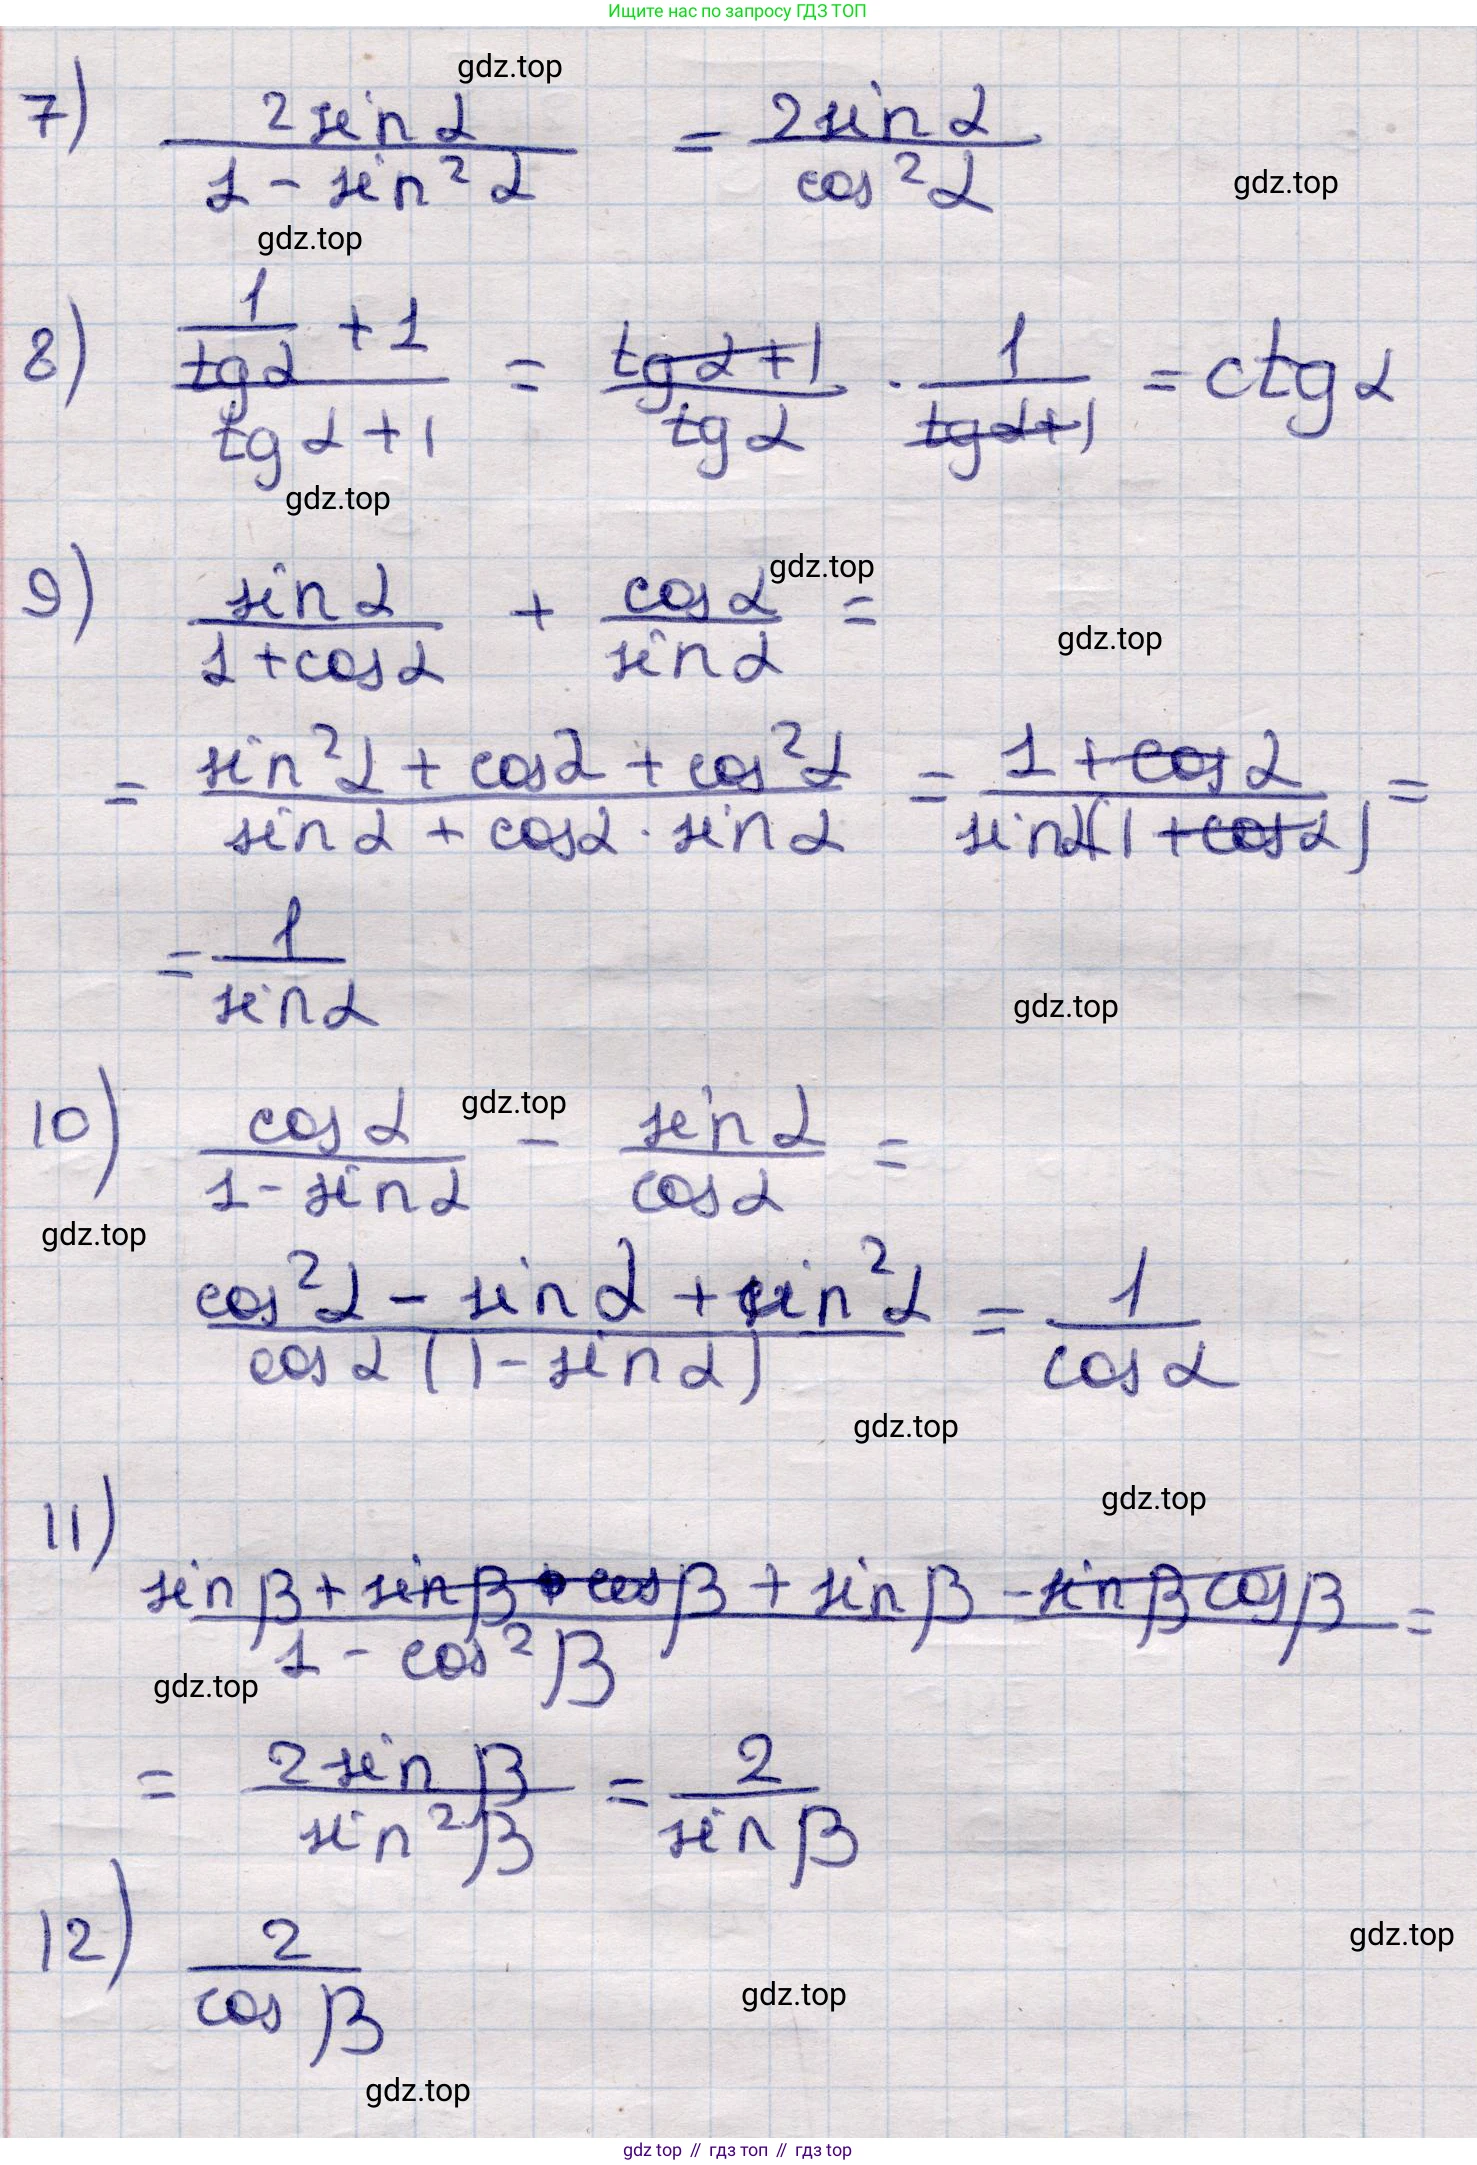 Ищите нас по запросу ГДЗ ТОП
gdz.top
7) (2 sin α)/(1 - sin² α) = (2 sin α)/(cos² α)
gdz.top
gdz.top
8) (1/(tg α) + 1)/(tg α + 1) = (tg α + 1)/(tg α) · 1/(tg α + 1) = ctg α
gdz.top
gdz.top
9) (sin α)/(1 + cos α) + (cos α)/(sin α) =
gdz.top
= (sin² α + cos α + cos² α)/(sin α + cos α · sin α) = (1 + cos α)/(sin α (1 + cos α)) =
= 1/(sin α)
gdz.top
gdz.top
10) (cos α)/(1 - sin α) - (sin α)/(cos α) =
gdz.top
(cos² α - sin α + sin² α)/(cos α (1 - sin α)) = 1/(cos α)
gdz.top
gdz.top
11)
(sin β + sin β · cos β + sin β - sin β cos β)/(1 - cos² β) =
gdz.top
= (2 sin β)/(sin² β) = 2/(sin β)
12) 2/(cos β)
gdz.top
gdz.top
gdz.top
gdz top // гдз топ // гдз top